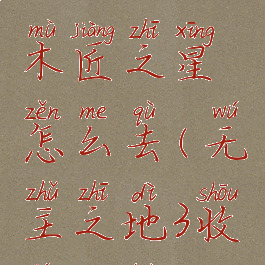 mù jiàng zhī xīng
木匠之星
zěn me qù wú
怎么去(无
zhǔ zhī dì shōu
主之地3收